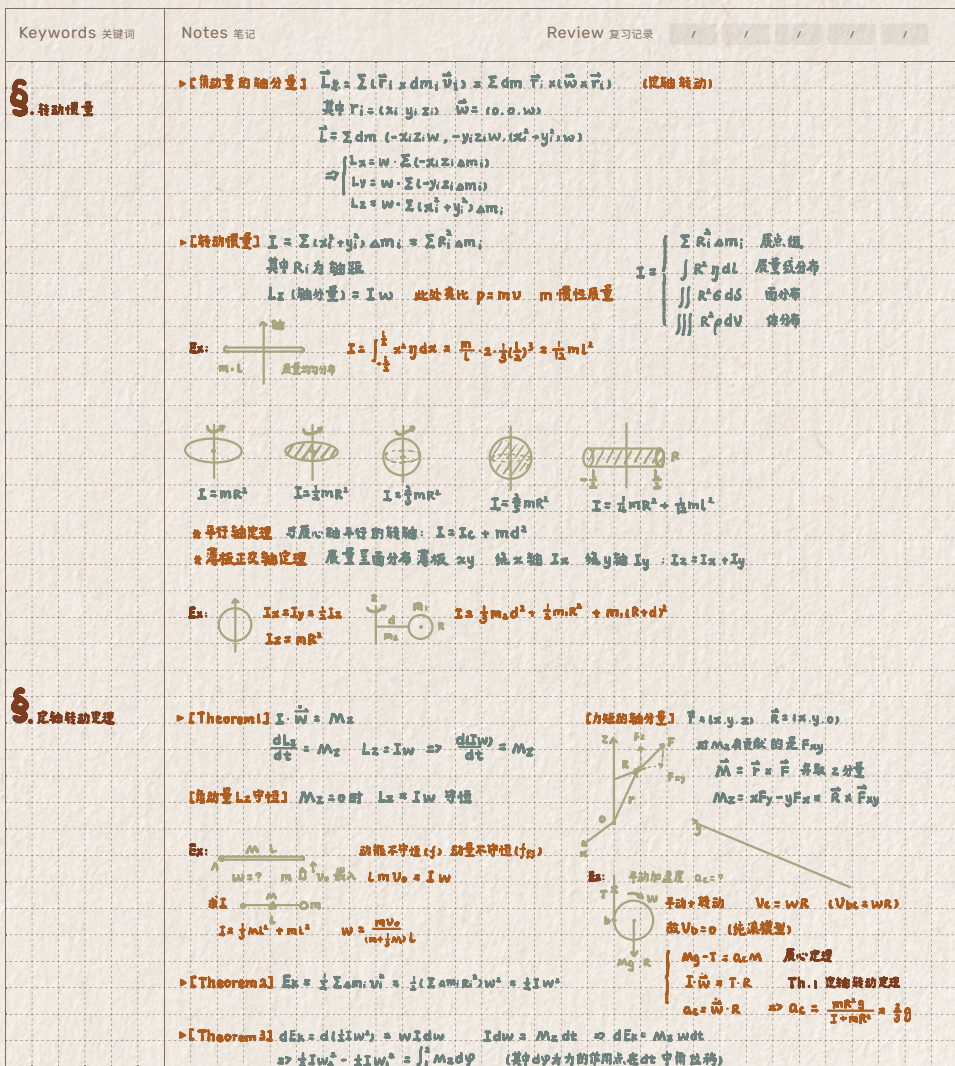 Keywords 关键词
Notes 笔记
Review 复习记录 / / / / /
§. 转动惯量
▸[角动量的轴分量] L⃗ = Σ(r⃗ᵢ × dmᵢ v⃗ᵢ) = Σdm r⃗ᵢ×(w⃗×r⃗ᵢ) (定轴转动)
其中 rᵢ=(xᵢ yᵢ zᵢ) w⃗=(0.0.w)
L⃗ = Σdm (-xᵢzᵢw, -yᵢzᵢw,(xᵢ²+yᵢ²)w)
⇒ { Lx = w·Σ(-xᵢzᵢΔmᵢ)
Ly = w·Σ(-yᵢzᵢΔmᵢ)
Lz = w·Σ(xᵢ²+yᵢ²)Δmᵢ
▸[转动惯量] I = Σ(xᵢ²+yᵢ²)Δmᵢ = ΣRᵢ²Δmᵢ
其中 Rᵢ 为 轴距
Lz (轴分量) = Iw 此处类比 p=mv m 惯性质量
I = { ΣRᵢ²Δmᵢ 质点组
∫R²ηdl 质量线分布
∬R²σdS 面分布
∭R²ρdV 体分布
Ex: 轴
m·L 质量均匀分布
I = ∫_{-L/2}^{L/2} x²ηdx = m/L ·2·1/3(L/2)³ = 1/12 ml²
I=mR²
I=1/2mR²
I=2/3mR²
I=2/5mR²
R
-L/2 L/2
I = 1/4mR² + 1/12ml²
* 平行轴定理 与质心轴平行的转轴: I=Ic + md²
* 薄板正交轴定理 质量呈面分布薄板 xy 绕x轴 Ix 绕y轴 Iy : Iz=Ix+Iy
Ex: Ix=Iy=1/2Iz
Iz = mR²
z d m₂ m₁ R
I = 1/3m₂d² + 1/2m₁R² + m₁(R+d)²
§. 定轴转动定理
▸[Theorem1] I·ẇ⃗ = Mz
dLz/dt = Mz Lz = Iw ⇒ d(Iw)/dt = Mz
[角动量Lz守恒] Mz=0时 Lz = Iw 守恒
Ex: M L
A w=? m v₀ 嵌入
动能不守恒(f) 动量不守恒(f)
Lmv₀ = Iw
求I M m
L
I= 1/3ML² + mL² w = mv₀/(m+1/3M)L
▸[Theorem2] Ek = 1/2ΣΔmᵢvᵢ² = 1/2(ΣΔmᵢRᵢ²)w² = 1/2Iw²
▸[Theorem3] dEk = d(1/2Iw²) = wIdw Idw = Mzdt ⇒ dEk = Mzwdt
⇒ 1/2Iw₂² - 1/2Iw₁² = ∫₁²Mzdφ (其中dφ为力的作用点在dt 中角位移)
[力矩的轴分量] r⃗=(x.y.z) R⃗=(x.y.0)
z Fz F
R Fxy
r
o
x y
对Mz有贡献的是Fxy
M⃗ = r⃗ × F⃗ 并取z分量
Mz = xFy-yFx = R⃗ × F⃗xy
Ex: 平动加速度 ac=?
T w
b
Mg·R
平动+转动 Vc = wR (Vbc=wR)
故Vb=0 (纯滚模型)
{ Mg-T = acM 质心定理
I·ẇ⃗ = T·R Th.1 定轴转动定理
ac = ẇ⃗·R ⇒ ac = mR²g/I+mR² = 2/3g